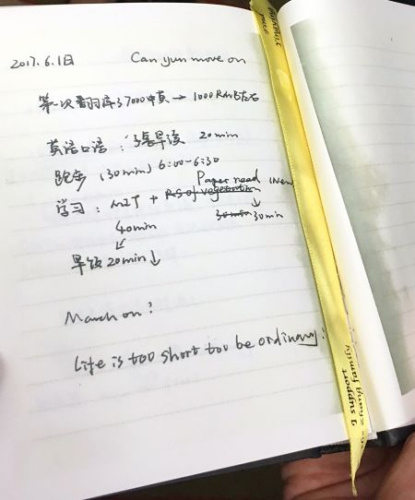 2017.6.1日 Can yun move on
第一次翻习库了7000中页 → 1000RmB左右
英语口语：张早读 20min
跑步 (30min) 6:00-6:30
Paper need
学习：MIT + RS of vegetation
40min 30min 30min
早饭 20min ↓
March on!
Life is too short too be ordinary!